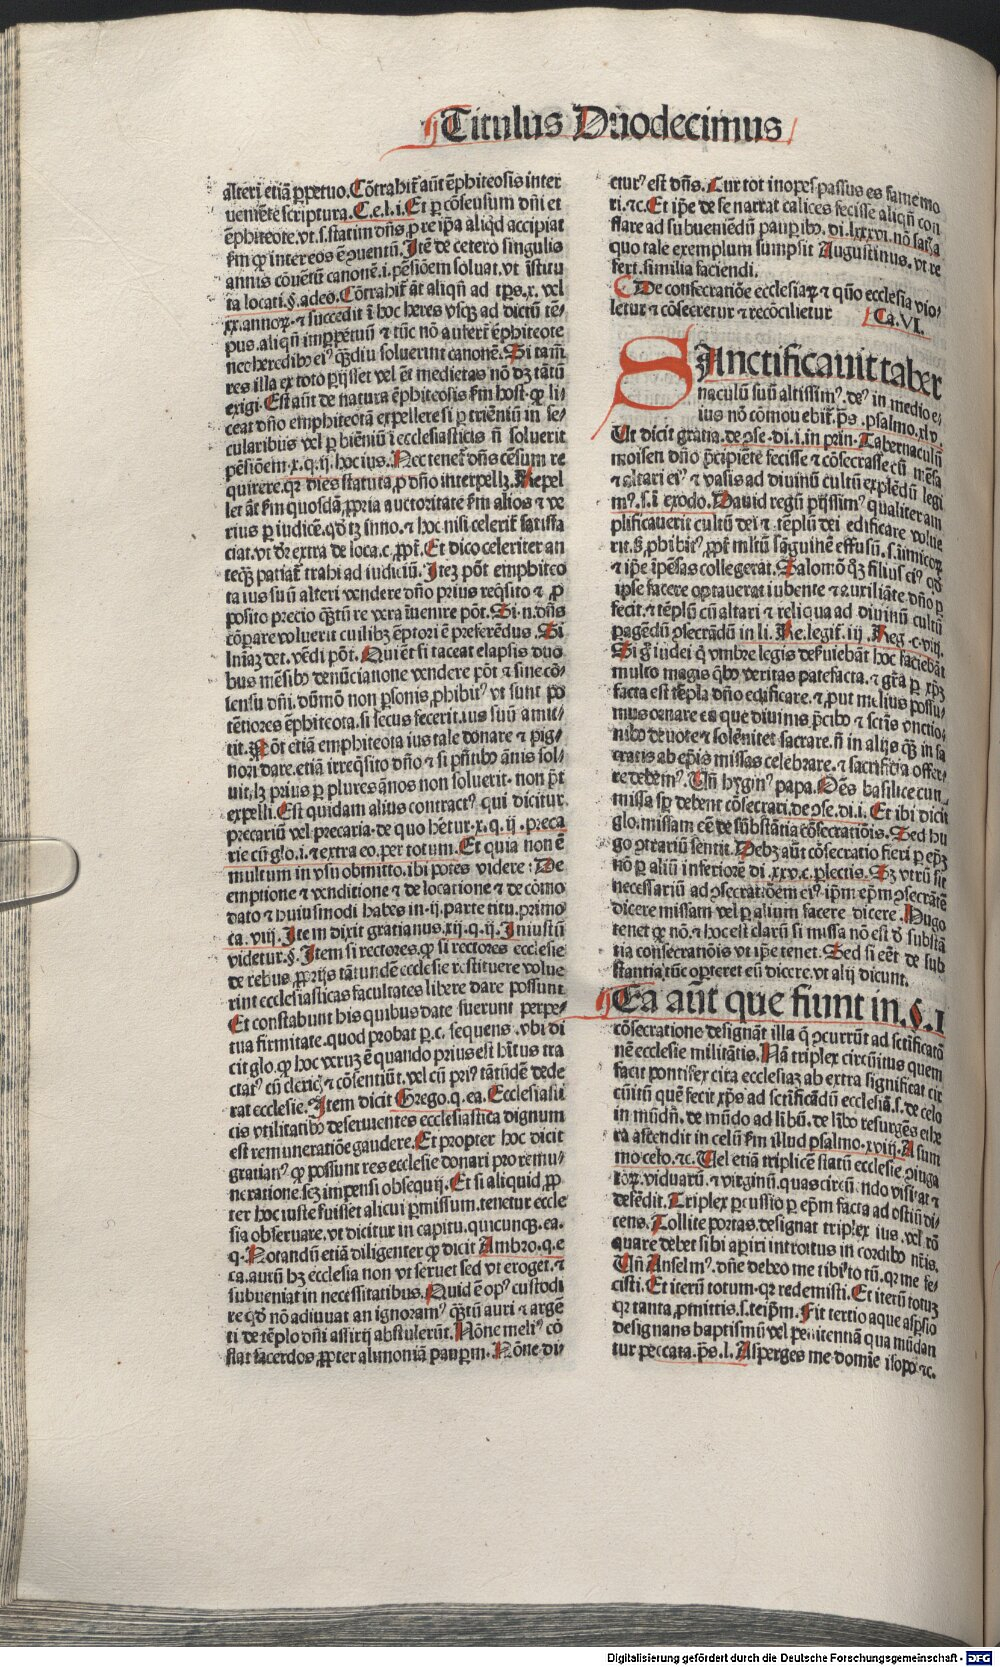 Titulus Duodecimus
alteri etiā ꝑpetuo. Cōtrahit᷑ aūt ēphiteosis inter
ueniēte scriptura. C. e. l. i. Et ꝑ cōsensum dn̄i et
ēphiteote. vt. s. statim dn̄s ꝓ re ip̄a aliqd accipiat
fm ꝙ inter eos ē ꝯuentū. Itē de cetero singulis
annis cōuētū canonē .i. pēsiōem soluat. vt īstitu
ta locati. §. adeo. Cōtrahit᷑ āt aliqn̄ ad tꝑs. x. vel
xx. annoꝝ. ⁊ succedit ī hoc heres vsqꝫ ad dictū tē⸗
pus. aliqn̄ imꝑpetuū ⁊ tūc nō aufert᷑ ēphiteote
nec heredibꝰ eiꝰ q̄ꝫdiu soluerint canonē. Si tam̄
res illa ex toto perijsset vel ēt medietas nō dꝫ tātū
exigi. Est aūt de natura ēphiteosis fm host. ꝙ li⸗
ceat dn̄o emphiteotā expellere si ꝑ trieniū in se⸗
cularibus vel ꝑ bieniū ī ecclesiasticis n̄ soluerit
pēsiōem. x. q. ij. hoc ius. Nec tenet᷑ dn̄s cēsum re
quirere. qꝛ dies statuta ꝓ dn̄o interpellꝫ. Repel
let āt fm quosdā ꝓpria auctoritate fm alios ⁊ ve
rius ꝑ iudicē. qd̄ tꝫ inno. ⁊ hoc nisi celerit᷑ satisfa
ciat. vt dr̄ extra de loca. c. ꝓpt᷑. Et dico celeriter an
teqꝫ patiat᷑ trahi ad iudiciū. Itez pōt emphiteo
ta ius suū alteri vendere dn̄o prius reqsito ⁊ ꝓ
posito precio qꝫtū re vera īuenire pōt. Si .n. dn̄s
cōparare voluerit cuilibꝫ ēptori ē preferēdus. Si
lniāꝫ det. vēdi pōt. Qui ēt si taceat elapsis duo
bus mēsibꝰ denūciatione vendere pōt ⁊ sine cō⸗
sensu dn̄i. dūmō non ꝑsonis ꝓhibitꝭ vt sunt po
tētiores ēphiteota. si secus fecerit. ius suū amit⸗
tit. Pōt etiā emphiteota ius tale donare ⁊ pig⸗
nori dare. etiā irreqsito dn̄o ⁊ si pn̄tibꝰ ānis sol⸗
uit. lꝫ prius ꝑ plures ānos non soluerit. non pn̄t
expelli. Est quidam alius contractꝰ qui dicitur
precariū vel precaria. de quo hētur. x. q. ij. preca
rie cū glo. i. ⁊ extra eo. per totum. Et quia non ē
multum in vsu obmitto. ibi potes videre: De
emptione ⁊ venditione ⁊ de locatione ⁊ de cōmo
dato ⁊ huiusmodi habes in. ij. parte titu. primo
ca. viij. Item dixit gratianus. xij. q. ij. Iniustū
videtur. §. Item si rectores. ꝙ si rectores ecclesie
de rebus ꝓprijs tātundē ecclesie restituere volue
rint ecclesiasticas facultates libere dare possunt
Et constabunt his quibus date fuerunt perpe⸗
tua firmitate. quod probat ꝑ. c. sequens. vbi di
cit glo. ꝙ hoc verum ē quando prius est hītus tra
ctatꝰ cū clericꝭ ⁊ cōsentiūt. vel cū peiꝰ tātūdē dede
rat ecclesie. Item dicit Grego. q. ea. Ecclesiasti
cis vtilitatibꝰ deseruientes ecclesiastica dignum
est remuneratiōe gaudere. Et propter hoc dicit
gratianꝰ ꝙ possunt res ecclesie donari pro remu⸗
neratione. sez impensi obsequij. Et si aliquid ꝓp
ter hoc iuste fuisset alicui ꝑmissum. tenetur eccle
sia obseruare. vt dicitur in capitu. quicunqꝫ. ea.
q. Notandū etiā diligenter ꝙ dicit Ambro. q. e
ca. aurū hꝫ ecclesia non vt seruet sed vt eroget. ⁊
subueniat in necessitatibus. Quid ē opꝰ custodi
re qd̄ nō adiuuat an ignoramꝰ qꝫtū auri ⁊ argē
ti de tēplo dn̄i assirij abstulerūt. Nōne meliꝰ cō
flat sacerdos ꝓpter alimoniā pauꝑm. Nōne di⸗
ctur᷑ est dn̄s. Cur tot inopes passus es fame mo
ri. ⁊c. Et ip̄e de se narrat calices fecisse aliqn̄ con
flare ad subueniēdū pauꝑibꝰ. di. lxxxvi. nō satꝭa
quo tale exemplum sumpsit Augustinus. vt re
fert. similia faciendi.
De consecratiōe ecclesiaꝝ ⁊ qn̄o ecclesia vio⸗
letur ⁊ cōsecretur ⁊ recōcilietur Ca. VI.
SAnctificauit taber
naculū suū altissimꝰ. deꝰ in medio e⸗
ius nō cōmouebit᷑. p̄s. psalmo. xlv.
Vt dicit gratia. de ꝯse. di. i. in prin. Tabernaculū
moisen dn̄o p̄cipiēte fecisse ⁊ cōsecrasse cū mēsa
⁊ altari eiꝰ ⁊ vasis ad diuinū cultū explēdū legi
mꝰ. s. ī exodo. Dauid regū pijssimꝰ qualiter am
plificauerit cultū dei ⁊ tēplū dei edificare volue
rit. §. ꝓhibitꝰ ꝓpt᷑ mltū sanguinē effusū. s. inimicoꝝ
⁊ ip̄e īpēsas collegerat. Salomō qꝫ filius eiꝰ qd̄
ipse facere optauerat iubente ⁊ auxiliāte dn̄o ꝑ
fecit. ⁊ tēplū cū altari ⁊ reliqua ad diuinū cultū
pagēdū ꝯsecrādū in li. Re. legit᷑. iij. Reg. c. viij.
Si g᷑ iudei q̄ vmbre legis deseruiebāt hoc faciebāt
multo magis qbꝰ veritas patefacta. ⁊ gr̄a ꝑ xp̄ꝫ
facta est tēpla dn̄o edificare. ⁊ prout melius possu⸗
mus ornare ea que diuinis p̄cibꝰ ⁊ sctīs vnctio⸗
nibꝰ deuote ⁊ solēnitet᷑ sacrare. n̄ in alijs qꝫ in sa
cratis ab ep̄is missas celebrare. ⁊ sacrificia offer⸗
re debemꝰ. Vn̄ hyginꝰ papa. Oēs basilice cum
missa sp̄ debent cōsecrari. de ꝯse. di. i. Et ibi dicit
glo. missam eē de substātia cōsecratiōis. Sed hu
go ꝯtrariū sentit. Debꝫ aūt cōsecratio fieri ꝑ ep̄ꝫ
nō ꝑ aliū inferiorē di. xxv. c. ꝑlectis. Sꝫ vtrū sit
necessariū ad ꝯsecrat᷑. oēm eiꝰ ip̄m ep̄m ꝯsecrātē
dicere missam vel ꝑ alium facere dicere. Hugo
tenet ꝙ nō. ⁊ hoc est clarū si missa nō est d̄ substā
tia consecratiōis vt ip̄e tenet. Sed si eēt de sub
stantia tūc oporteret eū dicere. vt alij dicunt.
Ea aūt que fiunt in. §. I
cōsecratione designāt illa q̄ ꝯcurrūt ad sctificatō
nē ecclesie militātis. Nā triplex circūitus quem
facit pontifex circa ecclesiaꝫ ab extra significat cir
cūitū quē fecit xp̄s ad sctificādū ecclesiā. s. de celo
in mūdū. de mūdo ad libū. de libo resurgēs ethe
ra ascendit in celū fm illud psalmo. xviij. A sum
mo celo. ⁊c. Vel etiā triplicē statū ecclesie ꝯiuga
toꝝ. viduarū. ⁊ virginū. quas circūeundo visitat ⁊
defēdit. Triplex ꝑcussio ꝑ ep̄m facta ad ostiū di⸗
cens. Tollite portas. designat triplex ius. vel rō
quare debet sibi aꝑiri introitus in cordibꝰ nr̄is.
Vn̄ Anselmꝰ. dn̄e debeo me tibi to tū. qꝛ me fe⸗
cisti. Et iterū totum. qꝛ redemisti. Et iterū totuꝫ
qꝛ tanta ꝓmittis. s. teip̄m. Fit tertio aque asꝑsio
designans baptismū vel penitentiā qua mūdan
tur peccata. p̄s. l. Asperges me domīe isopo ⁊c.
Digitalisierung gefördert durch die Deutsche Forschungsgemeinschaft - DFG